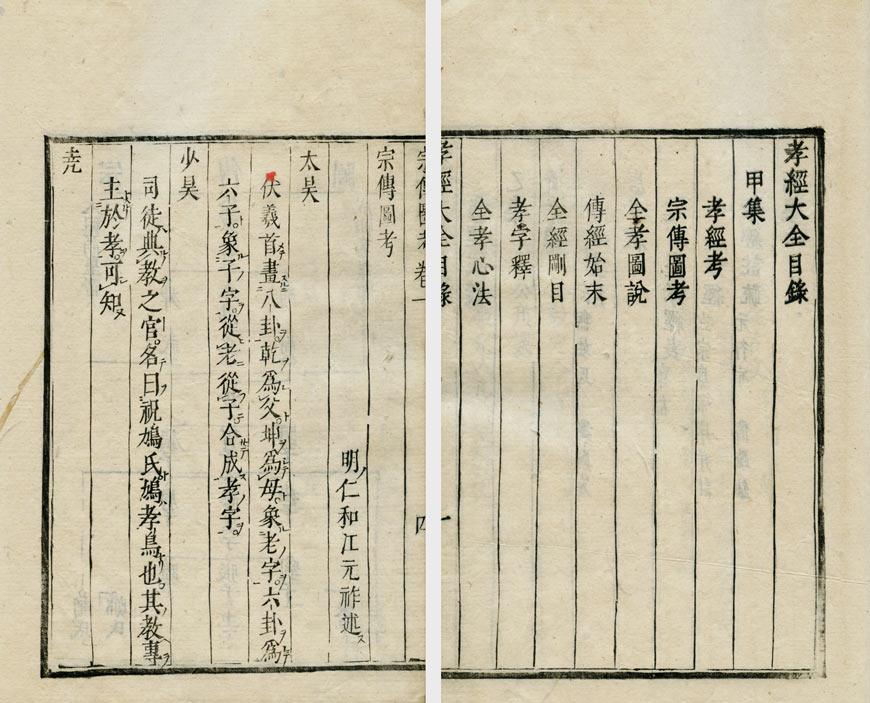 孝經大全目錄
甲集
孝經考
宗傳圖考
全孝圖說
傳經始末
全經剛目
孝字釋
全孝心法
孝經大全目錄 一
宗傳圖考卷一 四
宗傳圖考
明仁和江元祚述
太昊
伏羲首畫八卦乾爲父坤爲母象老字六卦爲
六子象子字從老從子合成孝字
少昊
司徒典教之官名曰祝鳩氏鳩孝鳥也其教專
主於孝可知
堯